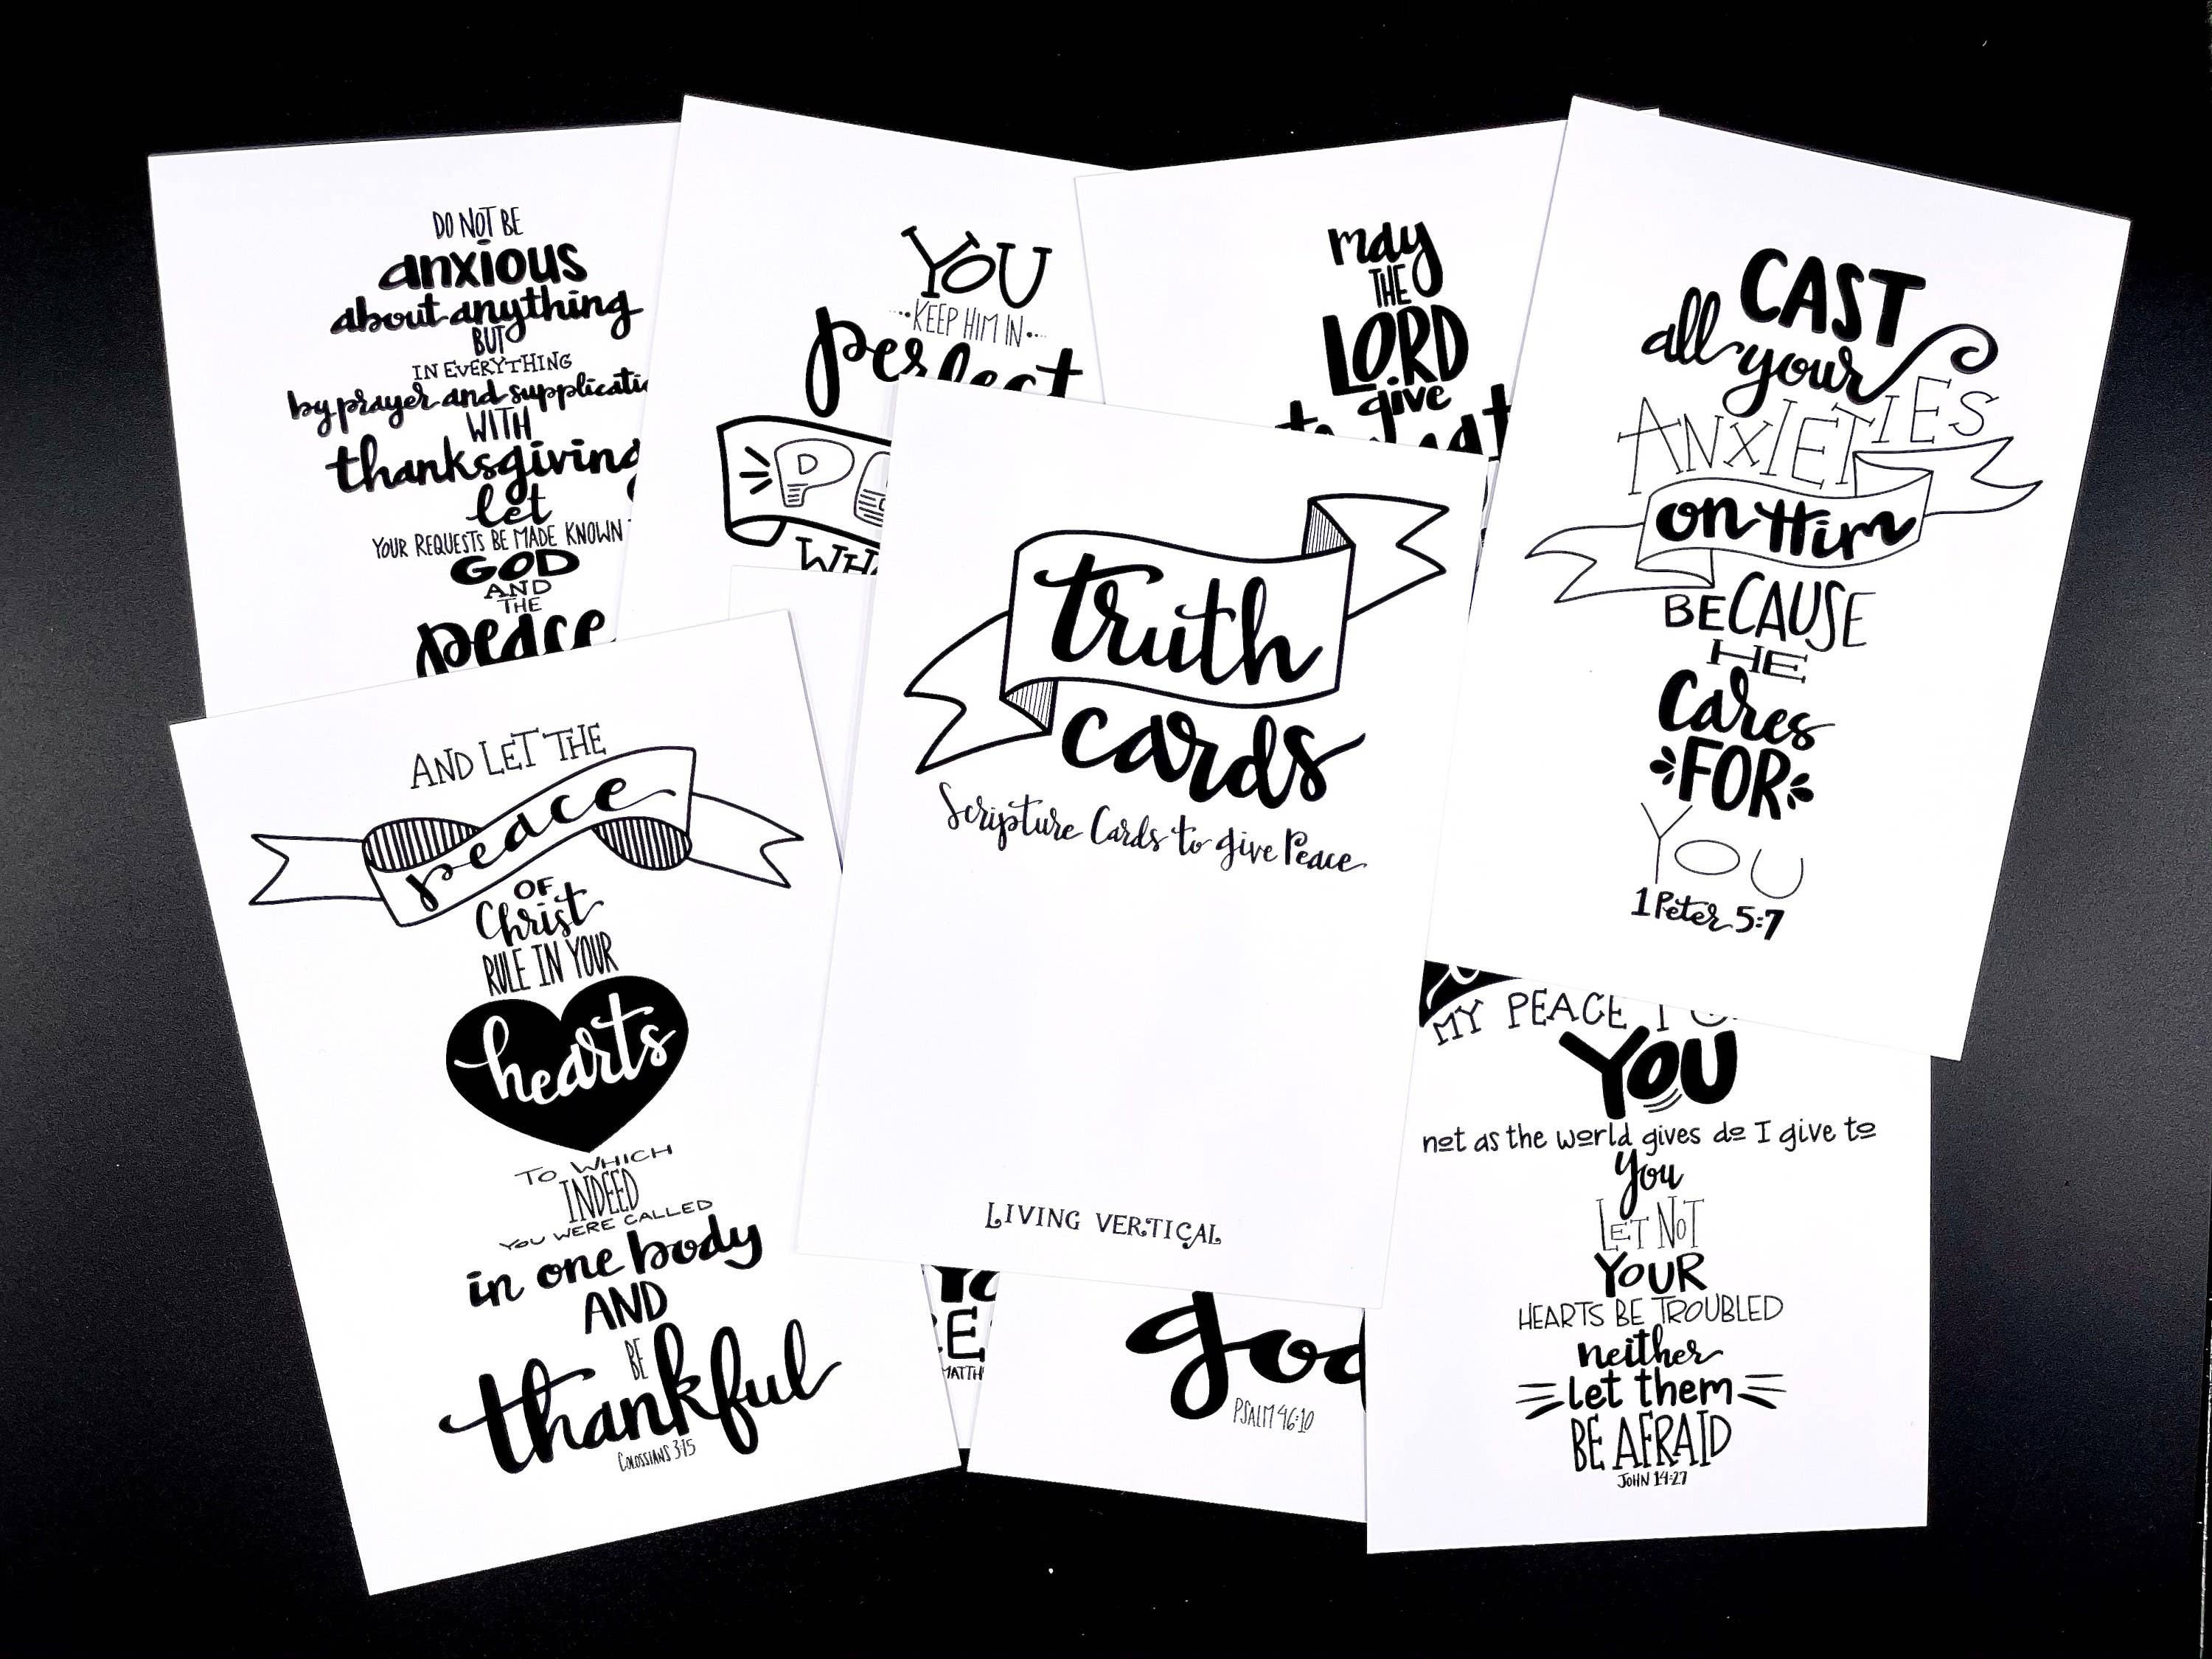 DO NOT BE
anxious
about anything
BUT
IN EVERYTHING
by prayer and supplicatio
WITH
thanksgiving
let
YOUR REQUESTS BE MADE KNOWN
GOD
AND
THE
peace
YOU
KEEP HIM IN
perfect
WH
may
THE
LORD
give
CAST
all your
ANXIETIES
on Him
BECAUSE
HE
Cares
FOR
YOU
1 Peter 5:7
truth
cards
Scripture Cards to give Peace
LIVING VERTICAL
AND LET THE
peace
OF
Christ
RULE IN YOUR
hearts
TO WHICH
INDEED
YOU WERE CALLED
in one body
AND
BE
thankful
COLOSSIANS 3:15
E
MATTH
god
PSALM 46:10
MY PEACE I
YOU
not as the world gives do I give to
you
LET NOT
YOUR
HEARTS BE TROUBLED
neither
let them
BE AFRAID
JOHN 14:27